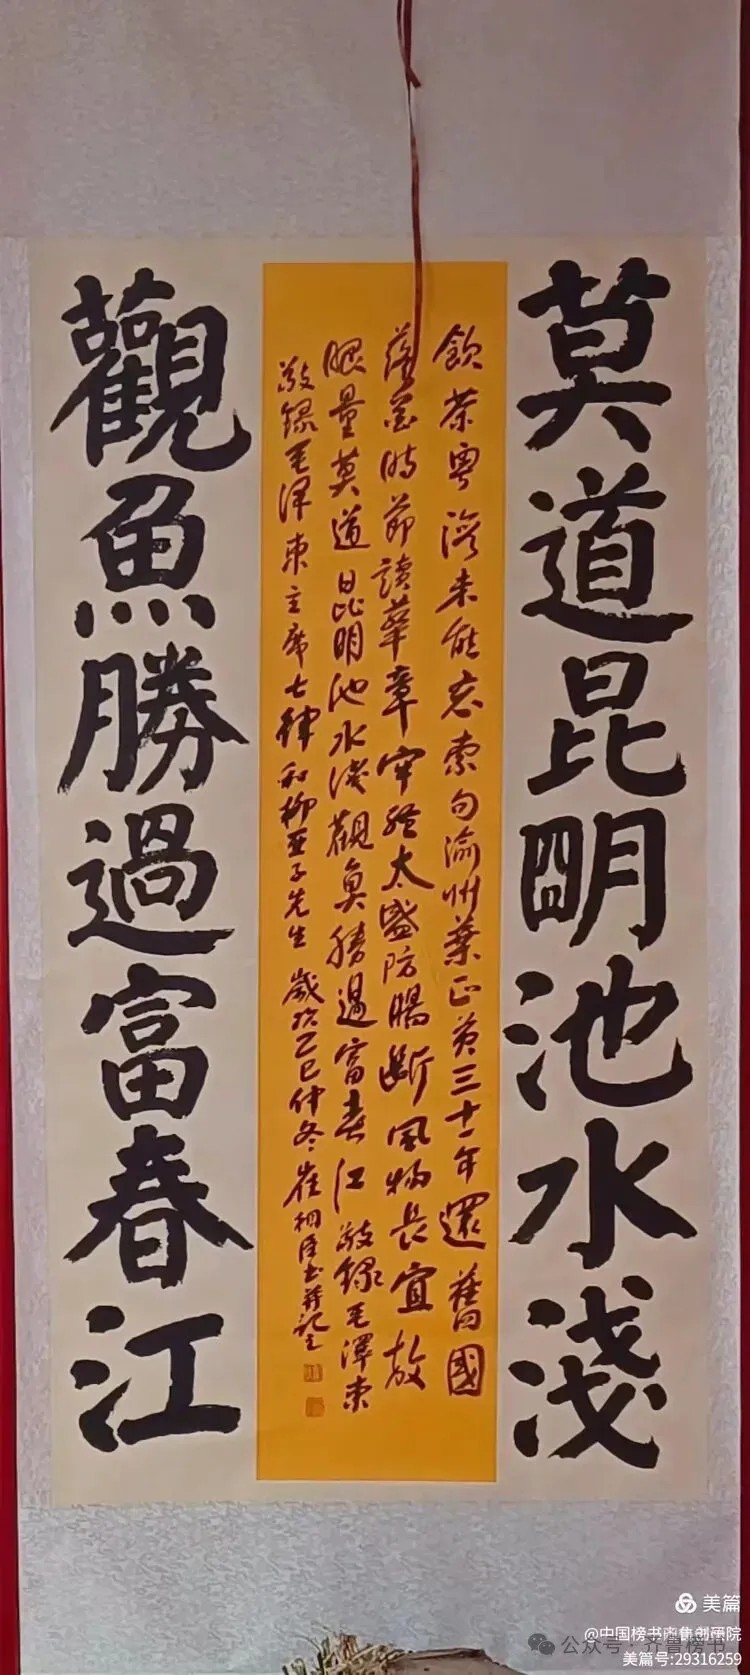 莫道昆明池水淺
飲茶粵海未能忘索句渝州葉正黃三十一年還舊國
落花時節讀華章牢騷太盛防腸斷風物長宜放
眼量莫道昆明池水淺觀魚勝過富春江敬錄毛澤東
敬錄毛澤東主席七律和柳亞子先生歲次乙巳仲冬崔桐書并記之
觀魚勝過富春江
美篇
@中国榜书市集创研院
公众号:齐鲁榜书
美篇号:29316259